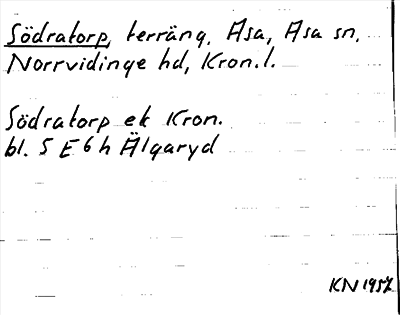 Södratorp, terräng. Asa, Asa sn,
Norrvidinge hd, Kron.l.
Södratorp ek Kron.
bl. 5 E 6 h Älgaryd
KN 1957